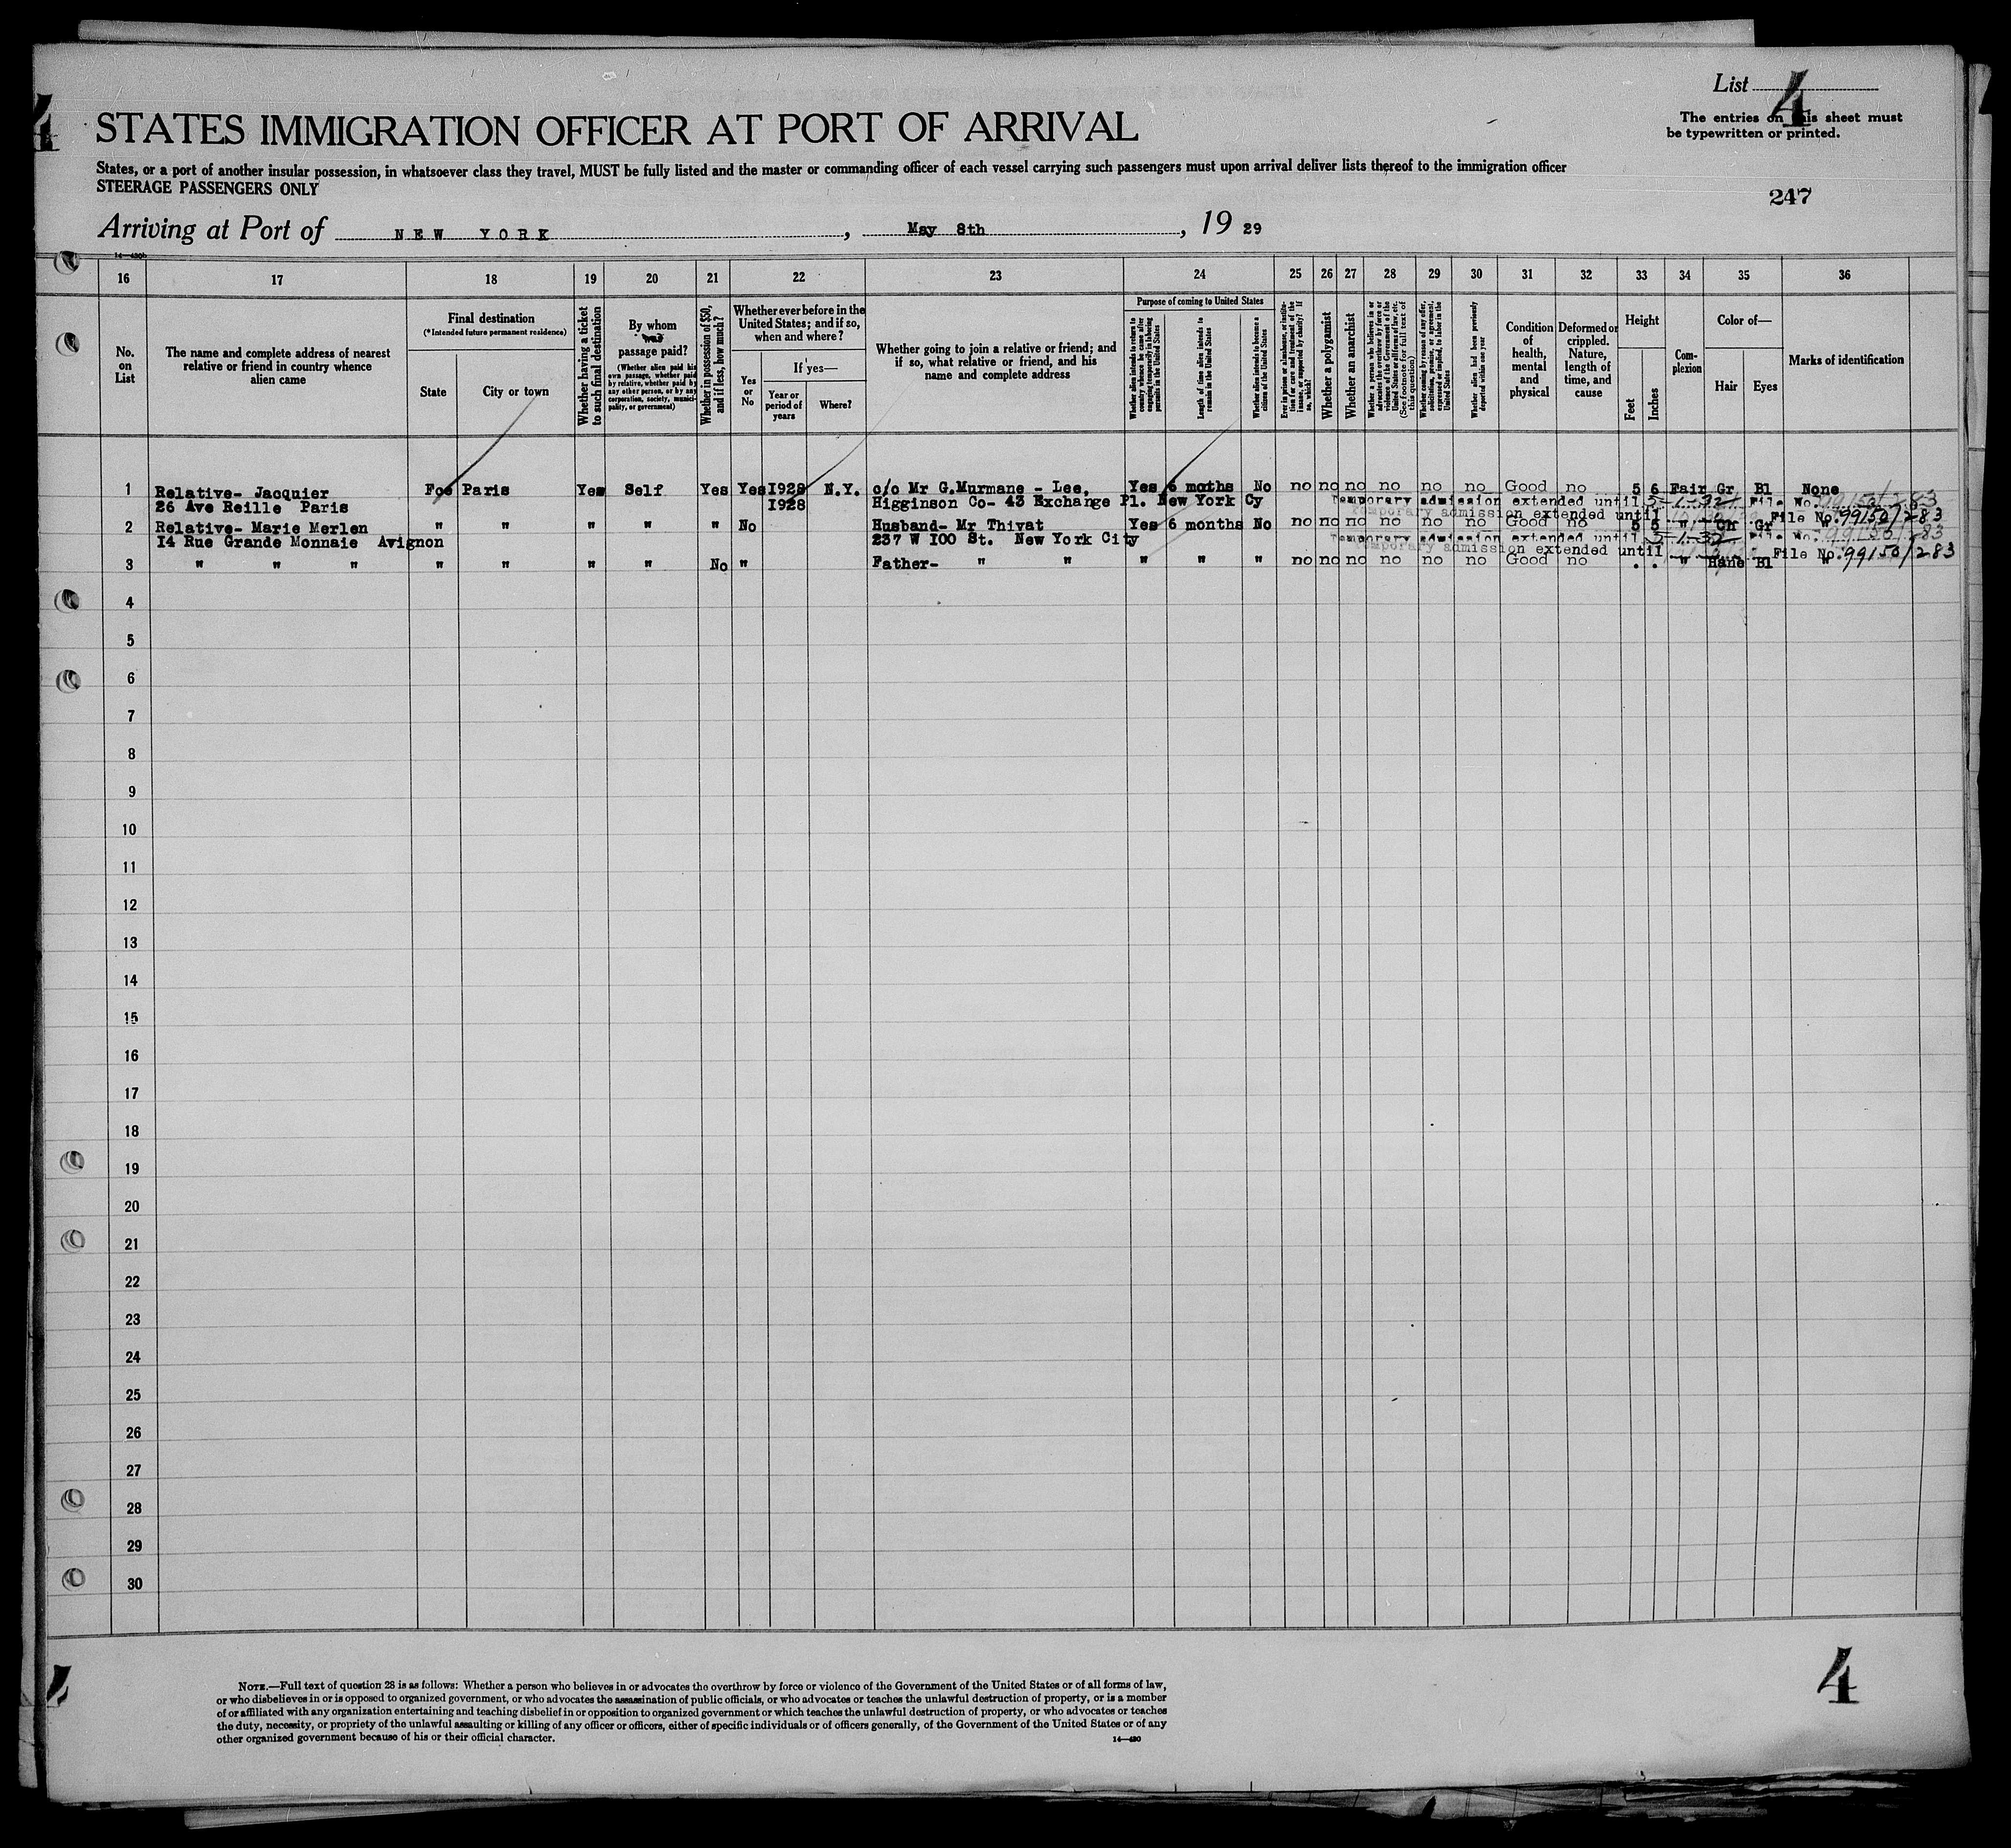 List 4
The entries on this sheet must
be typewritten or printed.
4
STATES IMMIGRATION OFFICER AT PORT OF ARRIVAL
States, or a port of another insular possession, in whatsoever class they travel, MUST be fully listed and the master or commanding officer of each vessel carrying such passengers must upon arrival deliver lists thereof to the immigration officer
STEERAGE PASSENGERS ONLY
247
Arriving at Port of NEW YORK, May 8th, 19 29
14—430b
16 17 18 19 20 21 22 23 24 25 26 27 28 29 30 31 32 33 34 35 36
No. on List
The name and complete address of nearest relative or friend in country whence alien came
Final destination
(*Intended future permanent residence)
State
City or town
Whether having a ticket to such final destination
By whom was passage paid?
(Whether alien paid his own passage, whether paid by relative, whether paid by any other person, or by any corporation, society, municipality, or government)
Whether in possession of $50, and if less, how much?
Whether ever before in the United States; and if so, when and where?
Yes or No
If yes—
Year or period of years
Where?
Whether going to join a relative or friend; and if so, what relative or friend, and his name and complete address
Purpose of coming to United States
Whether alien intends to return to country whence he came after engaging temporarily in laboring pursuits in the United States
Length of time alien intends to remain in the United States
Whether alien intends to become a citizen of the United States
Ever in prison or almshouse, or institution for care and treatment of the insane, or supported by charity? If so, which?
Whether a polygamist
Whether an anarchist
Whether a person who believes in or advocates the overthrow by force or violence of the Government of the United States or all forms of law, etc. (See footnote for full text of this question)
Whether coming by reason of any offer, solicitation, promise, or agreement, expressed or implied, to labor in the United States
Whether alien had been previously deported within one year
Condition of health, mental and physical
Deformed or crippled. Nature, length of time, and cause
Height
Feet
Inches
Complexion
Color of—
Hair
Eyes
Marks of identification
1 Relative- Jacquier Fce Paris Yes Self Yes Yes 1928 N.Y. c/o Mr G.Murmane - Lee, Yes 6 moths No no no no no no no Good no 5 6 Fair Gr Bl None
26 Ave Reille Paris 1928 Higginson Co- 43 Exchange Pl. New York Cy Temporary admission extended until 5-1-32 File No. 99150/283
Temporary admission extended until File No. 99150/283
2 Relative- Marie Merlen " " " " " No Husband- Mr Thivat Yes 6 months No no no no no no no Good no 5 5 " Ch Gr "
14 Rue Grande Monnaie Avignon 237 W 100 St. New York City Temporary admission extended until 5-1-32 File No. 99150/283
Temporary admission extended until File No. 99150/283
3 " " " " " " " No " Father- " " " " " no no no no no no Good no . . " Bl "
4
5
6
7
8
9
10
11
12
13
14
15
16
17
18
19
20
21
22
23
24
25
26
27
28
29
30
4
NOTE.—Full text of question 28 is as follows: Whether a person who believes in or advocates the overthrow by force or violence of the Government of the United States or of all forms of law,
or who disbelieves in or is opposed to organized government, or who advocates the assassination of public officials, or who advocates or teaches the unlawful destruction of property, or is a member
of or affiliated with any organization entertaining and teaching disbelief in or opposition to organized government or which teaches the unlawful destruction of property, or who advocates or teaches
the duty, necessity, or propriety of the unlawful assaulting or killing of any officer or officers, either of specific individuals or of officers generally, of the Government of the United States or of any
other organized government because of his or their official character.
14—430